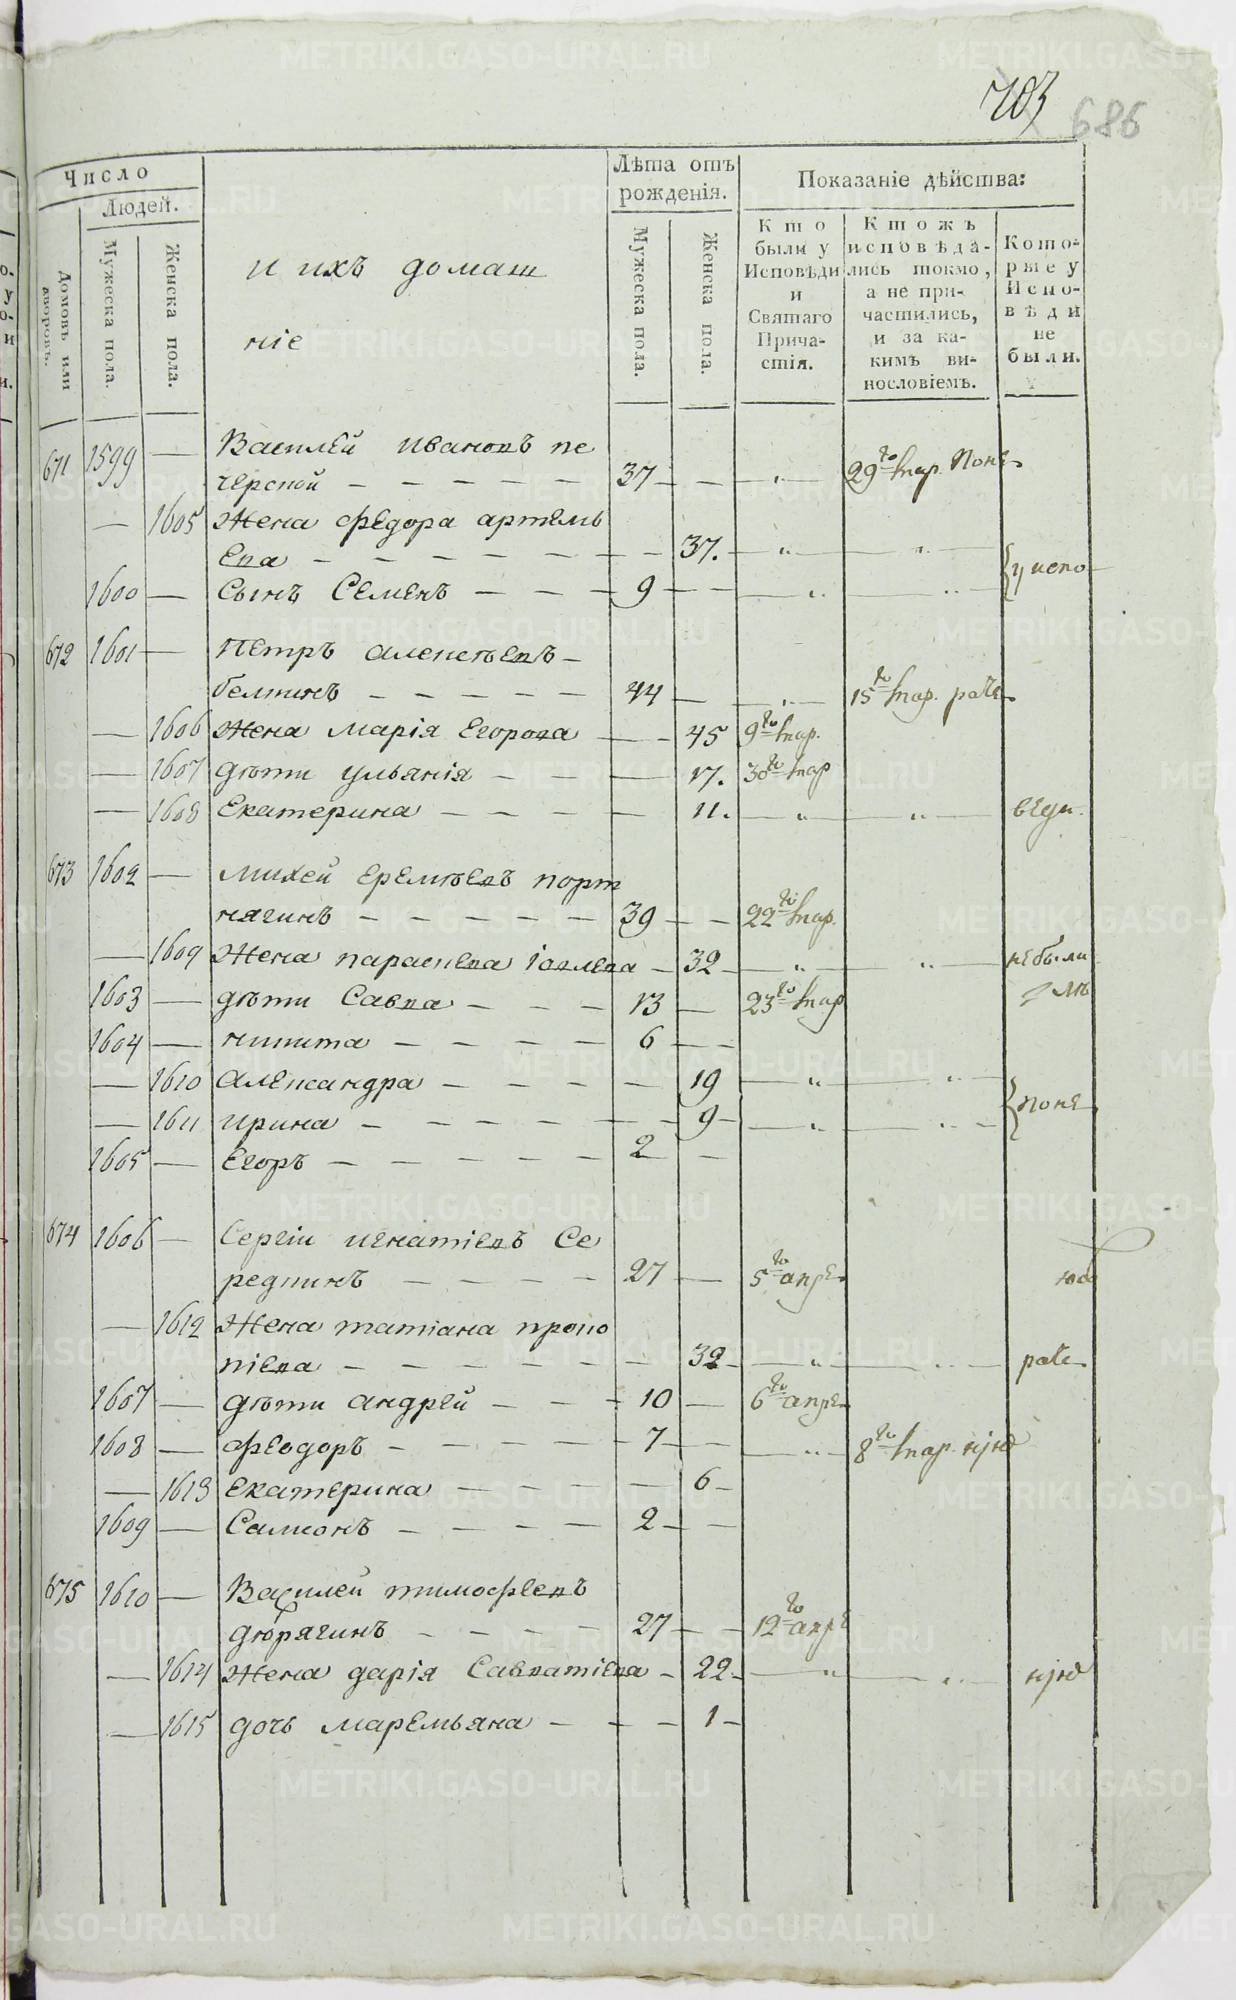 703 686
Число
Людей.
Домовъ или дворовъ.
Мужеска пола.
Женска пола.
и ихъ домаш
ніе
Лѣта отъ рожденія.
Мужеска пола.
Женска пола.
Показаніе дѣйства:
Кто были у Исповѣди и Святаго Причастія.
Ктожъ исповѣдались токмо, а не причастились, и за какимъ винословіемъ.
Которые у Исповѣди не были.
671 1599 — Василей Ивановъ пе
черской — 37 — 29го мар. поне
— 1605 Жена Федора Артемь
ева — 37.
1600 — Сынъ Семенъ — 9 — у испо
672 1601 — Петръ Алексѣевъ
44 — 15го мар.
— 1606 Жена Марія Егорова — 45 9го мар.
— 1607 дѣти Ульянія — 17. 30го мар
— 1608 Екатерина — 11.
673 1602 — Михей Еремѣевъ порт
нягинъ — 39 — 22го мар.
— 1609 Жена Параскева — 32 — небыли
1603 — дѣти Савва — 13 — 23го мар
1604 — Никита — 6
— 1610 Александра — 19
— 1611 Ирина — 9 — поне
1605 — Егоръ — 2
674 1606 — Сергіи Игнатіевъ Се
редкинъ — 27 — 5го апре
— 1612 Жена Татіана Проко
піева — 32
1607 — дѣти Андрей — 10 — 6го апре
1608 — Феодоръ — 7 — 8го мар.
— 1613 Екатерина — 6
1609 — Самсонъ — 2
675 1610 — Василей Тимофеевъ
дюрягинъ — 27 — 12го апре
— 1614 Жена Дарія Савватіева — 22
— 1615 дочь Маремьяна — 1
METRIKI.GASO-URAL.RU